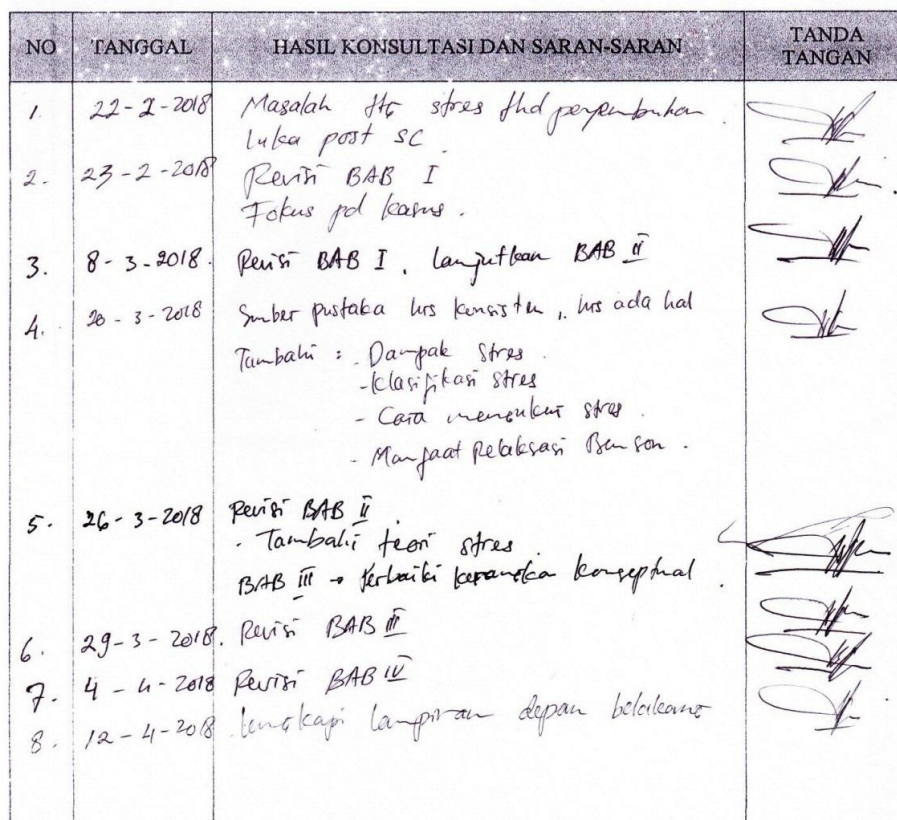 NO TANGGAL HASIL KONSULTASI DAN SARAN-SARAN TANDA TANGAN
1. 22-2-2018 Masalah ttg stres thd penyembuhan
luka post SC
2. 23-2-2018 Revisi BAB I
Fokus pd kasus.
3. 8-3-2018. Revisi BAB I, lanjutkan BAB II
4. 20-3-2018 Sumber pustaka hrs konsisten, hrs ada hal
Tambahi : - Dampak stres.
- Klasifikasi stres
- Cara mengukur stres.
- Manfaat Relaksasi Benson.
5. 26-3-2018 Revisi BAB II
- Tambahi teori stres.
BAB III → Perbaiki kerangka konseptual.
6. 29-3-2018. Revisi BAB III
7. 4-4-2018 Revisi BAB IV
8. 12-4-2018 lengkapi lampiran depan belakang